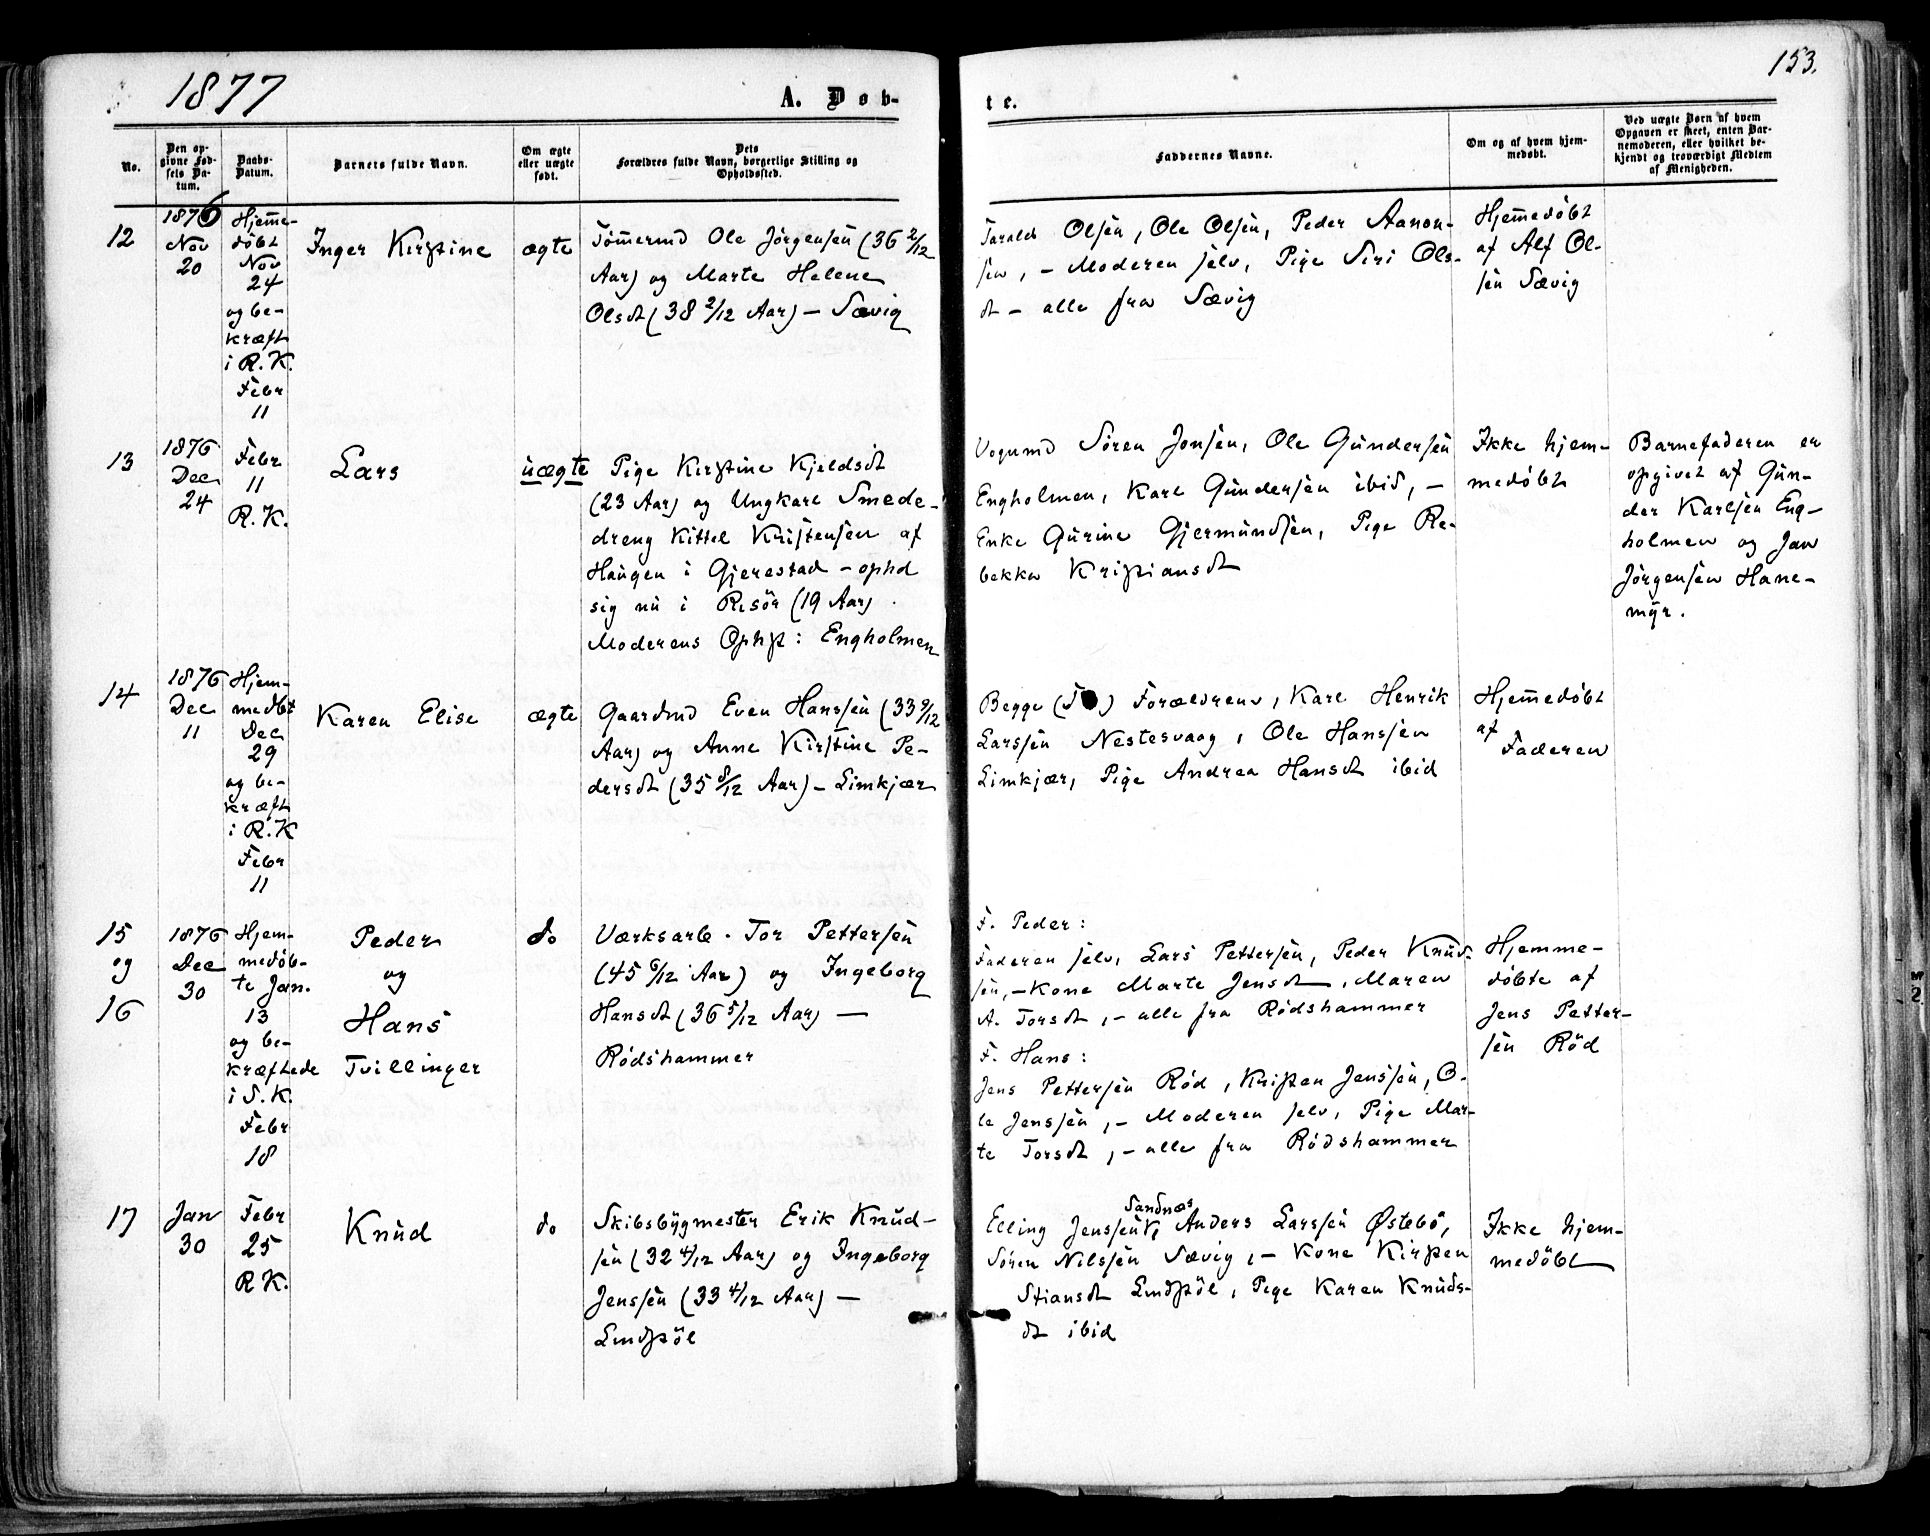 1877
A. Døb-
te.
153.
No.
Den op-
givne Fød-
sels Da-
tum.
Daabs-
Datum.
Barnets fulde Navn.
Om ægte
eller uægte
født.
Dets
Forældres fulde Navn, borgerlige Stilling og
Opholdssted.
Faddernes Navne.
Om og af hvem hjem-
medøbt.
Ved uægte Børn af hvem
Opgaven er skeet, enten Bar-
nemoderen, eller hvilket be-
kjendt og troværdigt Medlem
af Menigheden.
12
1876
Nov
20
Hjemme-
døbt
Nov
24
og be-
kræft
i R. K.
Febr
11
Inger Kirstine
ægte
Tømermd Ole Jörgensen (36 2/12
Aar) og Marte Helene
Olsdt (38 2/12 Aar) – Sævig
Tarald Olsen, Ole Olsen, Peder Aanon-
sen, – Moderen selv, Pige Siri Ols-
dt – alle fra Sævig
Hjemmedøbt
af Alf Ol-
sen Sævig
13
1876
Dec
24
Febr
11
R. K.
Lars
uægte
Pige Kirstine Kjeldsdt
(23 Aar) og Ungkarl Smede-
dreng Kittel Kristensen af
Haugen i Gjerestad – ophd
sig nu i Risör (19 Aar)
Moderens Ophst: Engholmen
Vognmd Sören Jonsen, Ole Gundersen
Engholmen, Karl Gundersen ibid, –
Enke Gurine Gjermundsen, Pige Re-
bekka Kristiansdt
Ikke hjem-
medøbt
Barnefaderen er
opgivet af Gun-
der Karlsen Eng-
holmen og Jan
Jörgensen Hane-
myr.
14
1876
Dec
11
Hjem-
medbt
Dec
29
og be-
kræft
i R. K
Febr
11
Karen Elise
ægte
Gaardmd Even Hanssen (33 9/12
Aar) og Anne Kirstine Pe-
dersdt (35 8/12 Aar) – Limkjær
Begge Forældrene, Karl Henrik
Larssen Nestesvaag, Ole Hanssen
Limkjær, Pige Andrea Hansdt ibid
Hjemmedøbt
af
Faderen
15
og
16
1876
Dec
30
Hjem-
medöb-
te Jan.
13
og be-
kræftede
i S. K.
Febr
18
Peder
og
Hans
Tvillinger
do
Værksarb. Tor Pettersen
(45 6/12 Aar) og Ingeborg
Hansdt (36 5/12 Aar) –
Rödshammer
F. Peder:
Faderen selv, Lars Pettersen, Peder Knud-
sen, – Kone Marte Jensdt, Maren
A. Torsdt, – alle fra Rödshammer
F. Hans:
Jens Pettersen Röd, Kristen Jenssen, O-
le Jenssen, – Moderen selv, Pige Mar-
te Torsdt, – alle fra Rödshammer
Hjemme-
döbte af
Jens Petter-
sen Röd
17
Jan
30
Febr
25
R K.
Knud
do
Skibsbygmester Erik Knud-
sen (32 4/12 Aar) og Ingeborg
Jenssen (33 4/12 Aar) –
Lindstöl
Sandnæs
Elling Jenssen, Anders Larssen Østebö,
Sören Nilssen Sævig, – Kone Kirsten
Stiansdt Lindstöl, Pige Karen Knuds-
dt ibid
Ikke hjem-
medöbt